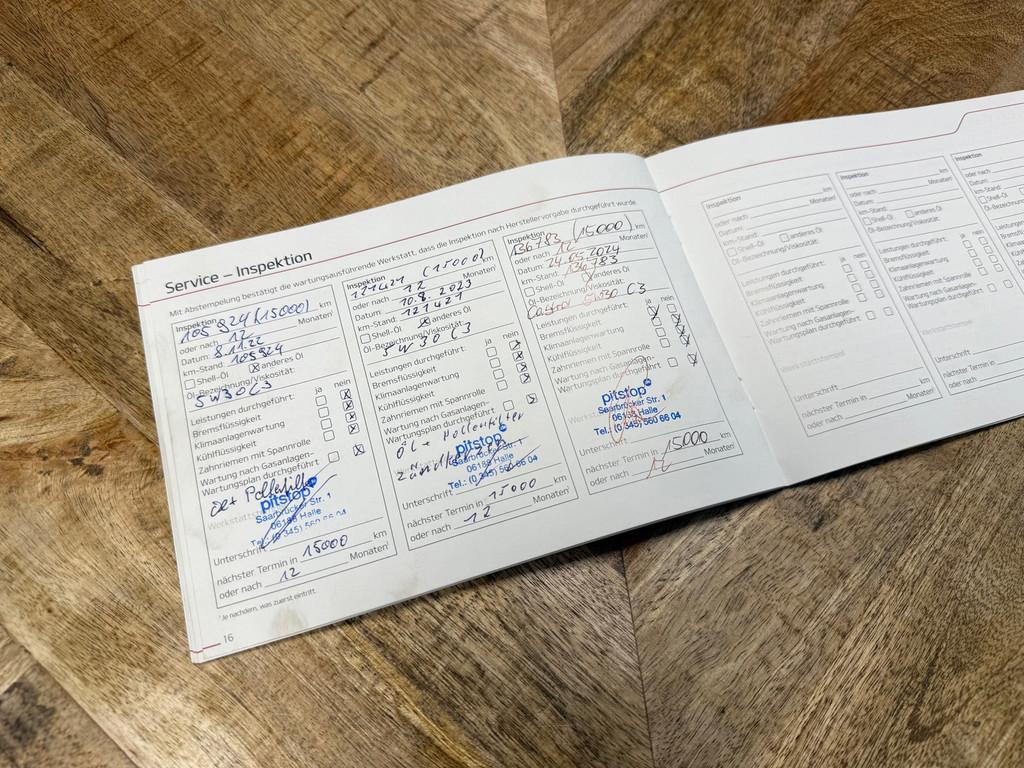 Service – Inspektion
Mit Abstempelung bestätigt die wartungsausführende Werkstatt, dass die Inspektion nach Herstellervorgabe durchgeführt wurde.
Inspektion
105 924 (15000) km
oder nach 12 Monaten¹
Datum: 8.11.22
km-Stand: 105924
Shell-Öl anderes Öl
Öl-Bezeichnung/Viskosität:
5W30 C3
Leistungen durchgeführt: ja nein
Bremsflüssigkeit
Klimaanlagenwartung
Kühlflüssigkeit
Zahnriemen mit Spannrolle
Wartung nach Gasanlagen-
Wartungsplan durchgeführt
Öl + Pollenfilter
pitstop
Saarbrücker Str. 1
Halle
Unterschrift
nächster Termin in 15000 km
oder nach 12 Monaten¹
Inspektion
121421 (15000) km
oder nach 12 Monaten¹
Datum: 10.8.2023
km-Stand: 121421
Shell-Öl anderes Öl
Öl-Bezeichnung/Viskosität:
5W30 C3
Leistungen durchgeführt: ja nein
Bremsflüssigkeit
Klimaanlagenwartung
Kühlflüssigkeit
Zahnriemen mit Spannrolle
Wartung nach Gasanlagen-
Wartungsplan durchgeführt
Öl + Pollenfilter
Zündkerzen
pitstop
Saarbrücker Str. 1
Halle
Tel.: (0 345) 560 66 04
Unterschrift
nächster Termin in 15000 km
oder nach 12 Monaten¹
Inspektion
136783 (15000) km
oder nach 12 Monaten¹
Datum: 24.05.2024
km-Stand: 136783
Shell-Öl anderes Öl
Öl-Bezeichnung/Viskosität:
Castrol 5W30 C3
Leistungen durchgeführt: ja nein
Bremsflüssigkeit
Klimaanlagenwartung
Kühlflüssigkeit
Zahnriemen mit Spannrolle
Wartung nach Gasanlagen-
Wartungsplan durchgeführt
pitstop
Saarbrücker Str. 1
Halle
Tel.: (0 345) 560 66 04
Unterschrift
nächster Termin in 15000 km
oder nach Monaten¹
¹ Je nachdem, was zuerst eintritt.
16
Inspektion
km
oder nach Monaten¹
Datum:
km-Stand:
Shell-Öl anderes Öl
Öl-Bezeichnung/Viskosität:
Leistungen durchgeführt: ja nein
Bremsflüssigkeit
Klimaanlagenwartung
Kühlflüssigkeit
Zahnriemen mit Spannrolle
Wartung nach Gasanlagen-
Wartungsplan durchgeführt
Werkstattstempel
Unterschrift
nächster Termin in km
oder nach Monaten¹
Inspektion
km
oder nach Monaten¹
Datum:
km-Stand:
Shell-Öl anderes Öl
Öl-Bezeichnung/Viskosität:
Leistungen durchgeführt: ja nein
Bremsflüssigkeit
Klimaanlagenwartung
Kühlflüssigkeit
Zahnriemen mit Spannrolle
Wartung nach Gasanlagen-
Wartungsplan durchgeführt
Werkstattstempel
Unterschrift
nächster Termin in
oder nach
Inspektion
oder nach
Datum:
km-Stand:
Shell-Öl
Öl-Bezeichnung
Leistungen
Bremsflüssig
Klimaanlagen
Kühlflüssigk
Zahnriemen
Wartung nach
Wartungsplan